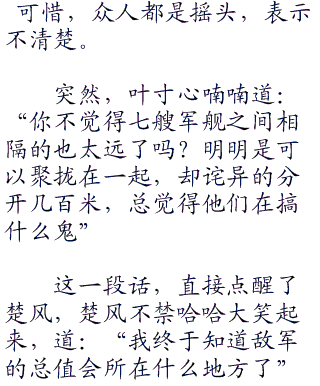 可惜，众人都是摇头，表示
不清楚。
突然，叶寸心喃喃道：
“你不觉得七艘军舰之间相
隔的也太远了吗？明明是可
以聚拢在一起，却诧异的分
开几百米，总觉得他们在搞
什么鬼”
这一段话，直接点醒了
楚风，楚风不禁哈哈大笑起
来，道：“我终于知道敌军
的总值会所在什么地方了”